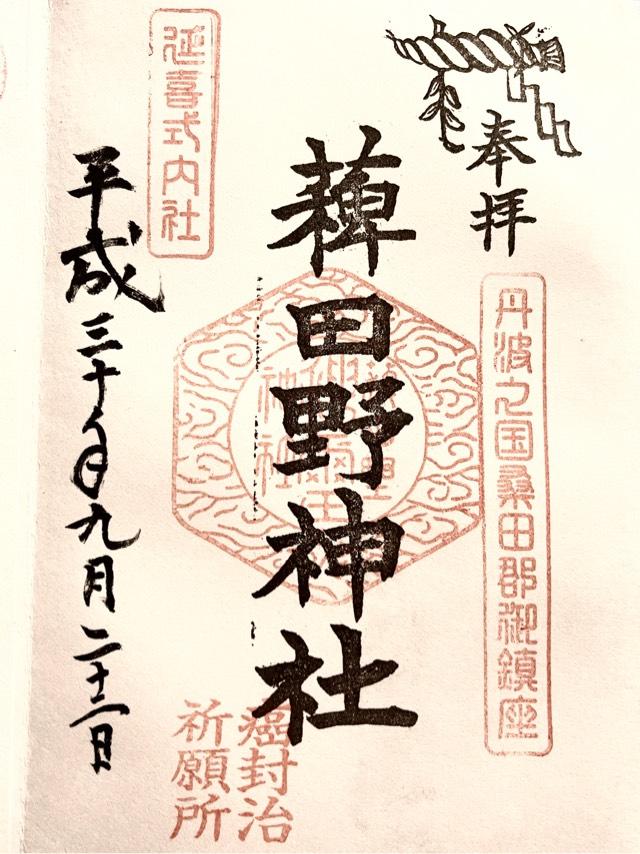 奉拝
丹波乃国桑田郡御鎮座
薭田野神社
癌封治
祈願所
延喜式内社
平成三十年九月二十二日